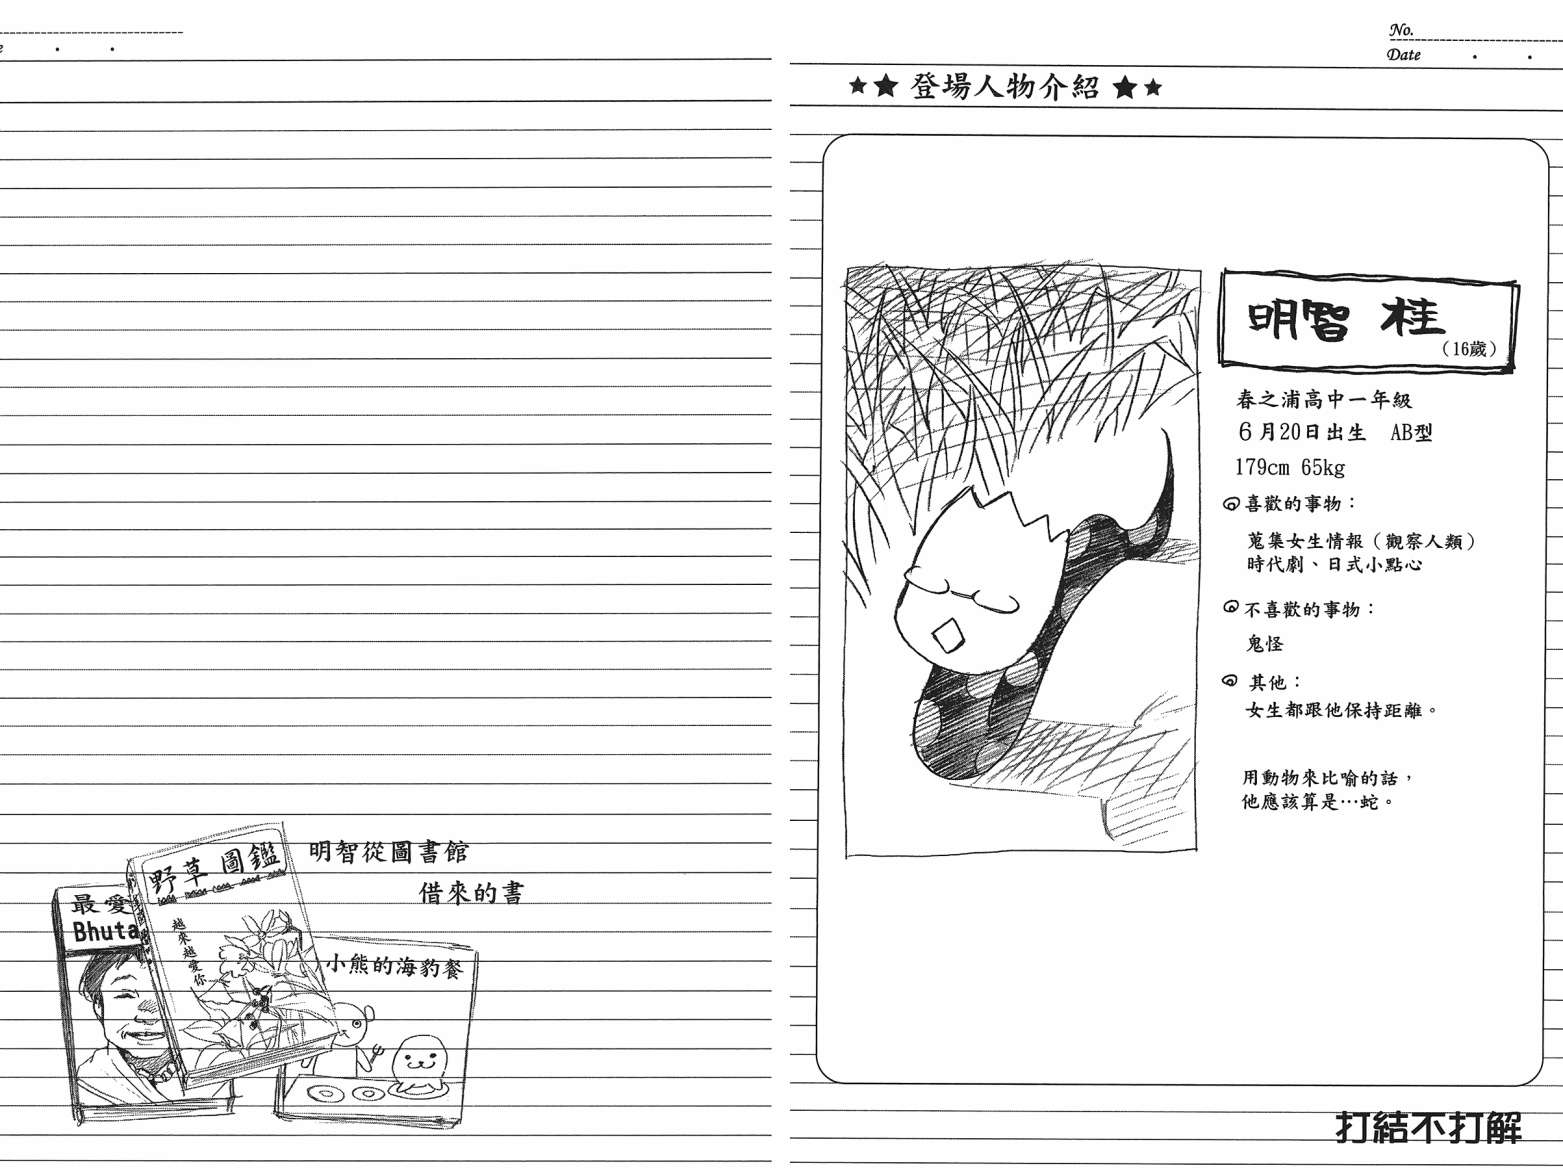 No.
Date
★★ 登場人物介紹 ★★
明智 桂
（16歲）
春之浦高中一年級
6月20日出生 AB型
179cm 65kg
喜歡的事物：
蒐集女生情報（觀察人類）
時代劇、日式小點心
不喜歡的事物：
鬼怪
其他：
女生都跟他保持距離。
用動物來比喻的話，
他應該算是…蛇。
打結不打解
明智從圖書館
借來的書
野草圖鑑
越來越愛你
最愛
Bhuta
小熊的海豹餐